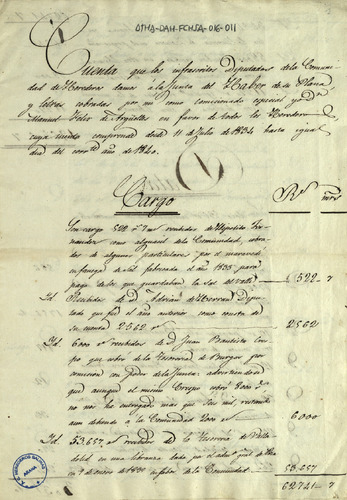 DTHA-DAH-FCHSA-016-011
Cuenta que los infrascritos Diputados de la Comuni-
dad de Herederos damos a la Junta del Haber de su Plana
y letras cobradas por mi como comisionado especial yo Dn
Manuel Felix de Argüelles en favor de todos los Herederos
cuyo mento conformidad desde 11 de Julio de 1834 hasta igual
dia del corrte año de 1840.
Cargo
Rs mrs
Son cargo 522 rs 7 mrs recibidos de Hipolito Fer-
nandez como alguacil de la Comunidad, cobra-
dos de algunos particulares, por el maravedi
en fanega de sal fabricada el año 1835 para
pago de los que guardaban la sal del valle 522 7
Id. Recibidos de D. Adrian de Herran Dipu-
tado que fué el año anterior como consta de
su cuenta 2562 rs 2562
Id. 6000 rs recibidos de D. Juan Bautista Cres-
po que cobró de la Tesoreria de Burgos por
comision con poder de la Junta; advirtiendo
que aunque el mismo Crespo cobró 8000 rs
no nos ha entregado mas que seis mil restando
aun debiendo a la Comunidad 2000 rs 6000
Id. 53,657 rs recibidos de la Tesoreria de Valla-
dolid en una libranza dada por el
en 9 de enero de 1839 a favor de la Comunidad 53,657
62741 7